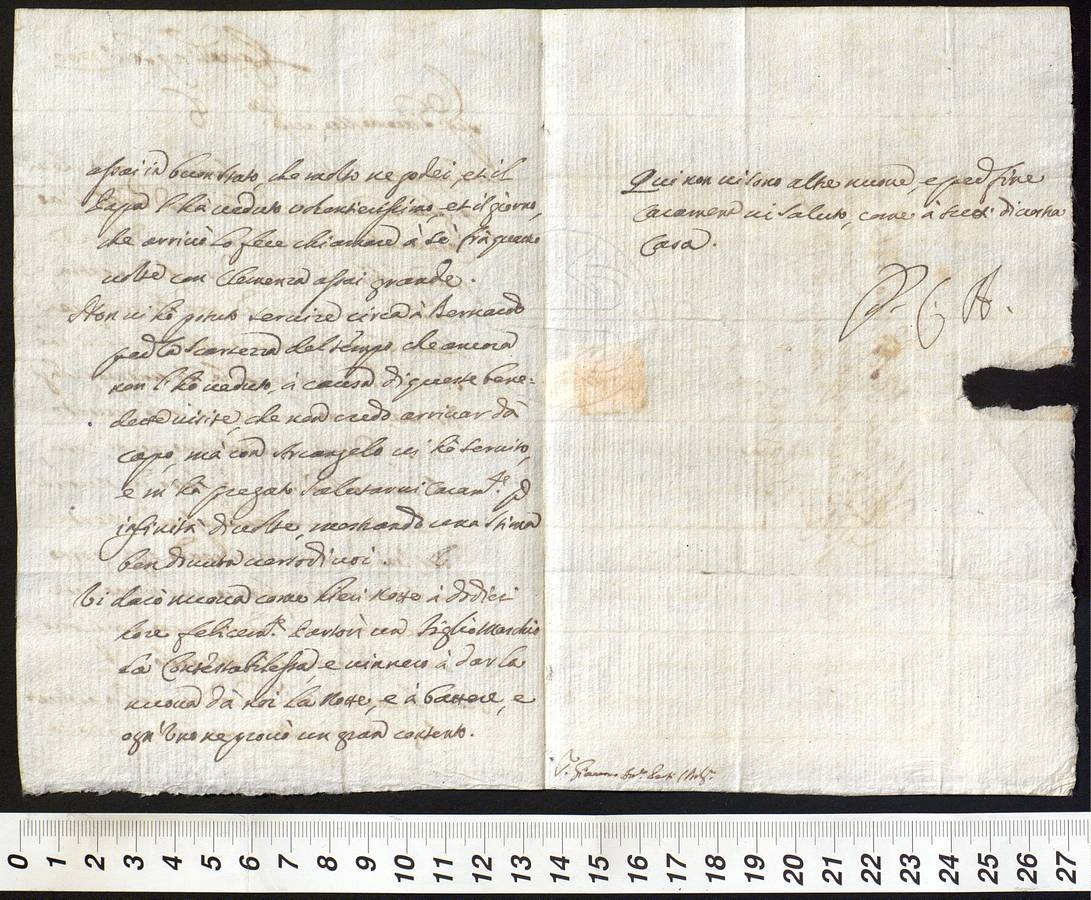 assai in buon stato, che molto ne godei, et il
Papa l'hà veduto volontierissimo, et il giorno,
che arrivò lo fece chiamare à sè frà quattro
volte con Clemenza assai grande.
Non vi hò potuto servire circa à Bernardo
per la scarsezza del tempo, che ancora
non l'hò veduto, à causa di queste bene=
dette visite, che non credo arrivar dà
capo, mà con Arcangelo vi hò servito,
e mi hà pregato salutarvi Caram.te p
infinità di volte, mostrando una stima
ben divota verso di voi.
Vi darò nuova come hieri notte à dodici
hore felicem.te Partorì un Figlio Maschio
La Contestabilessa, e vinnero à dar la
nuova dà noi la notte, e à battere, e
ogn'Uno ne provò un gran contento.
Qui non vi sono altre nuove, e per fine
Caramente vi saluto, come à tutti di vostra
Casa.
P. C. A.
S.r Giacomo
0 1 2 3 4 5 6 7 8 9 10 11 12 13 14 15 16 17 18 19 20 21 22 23 24 25 26 27